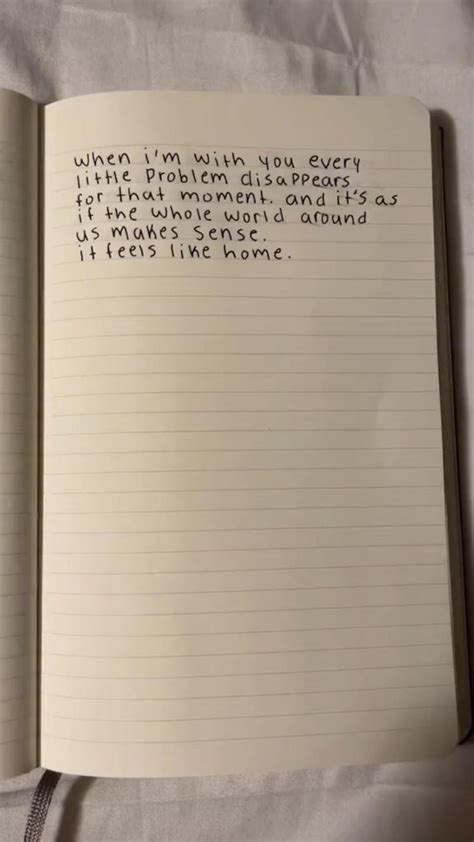 when i'm with you every
little problem disappears
for that moment. and it's as
if the whole world around
us makes sense.
it feels like home.